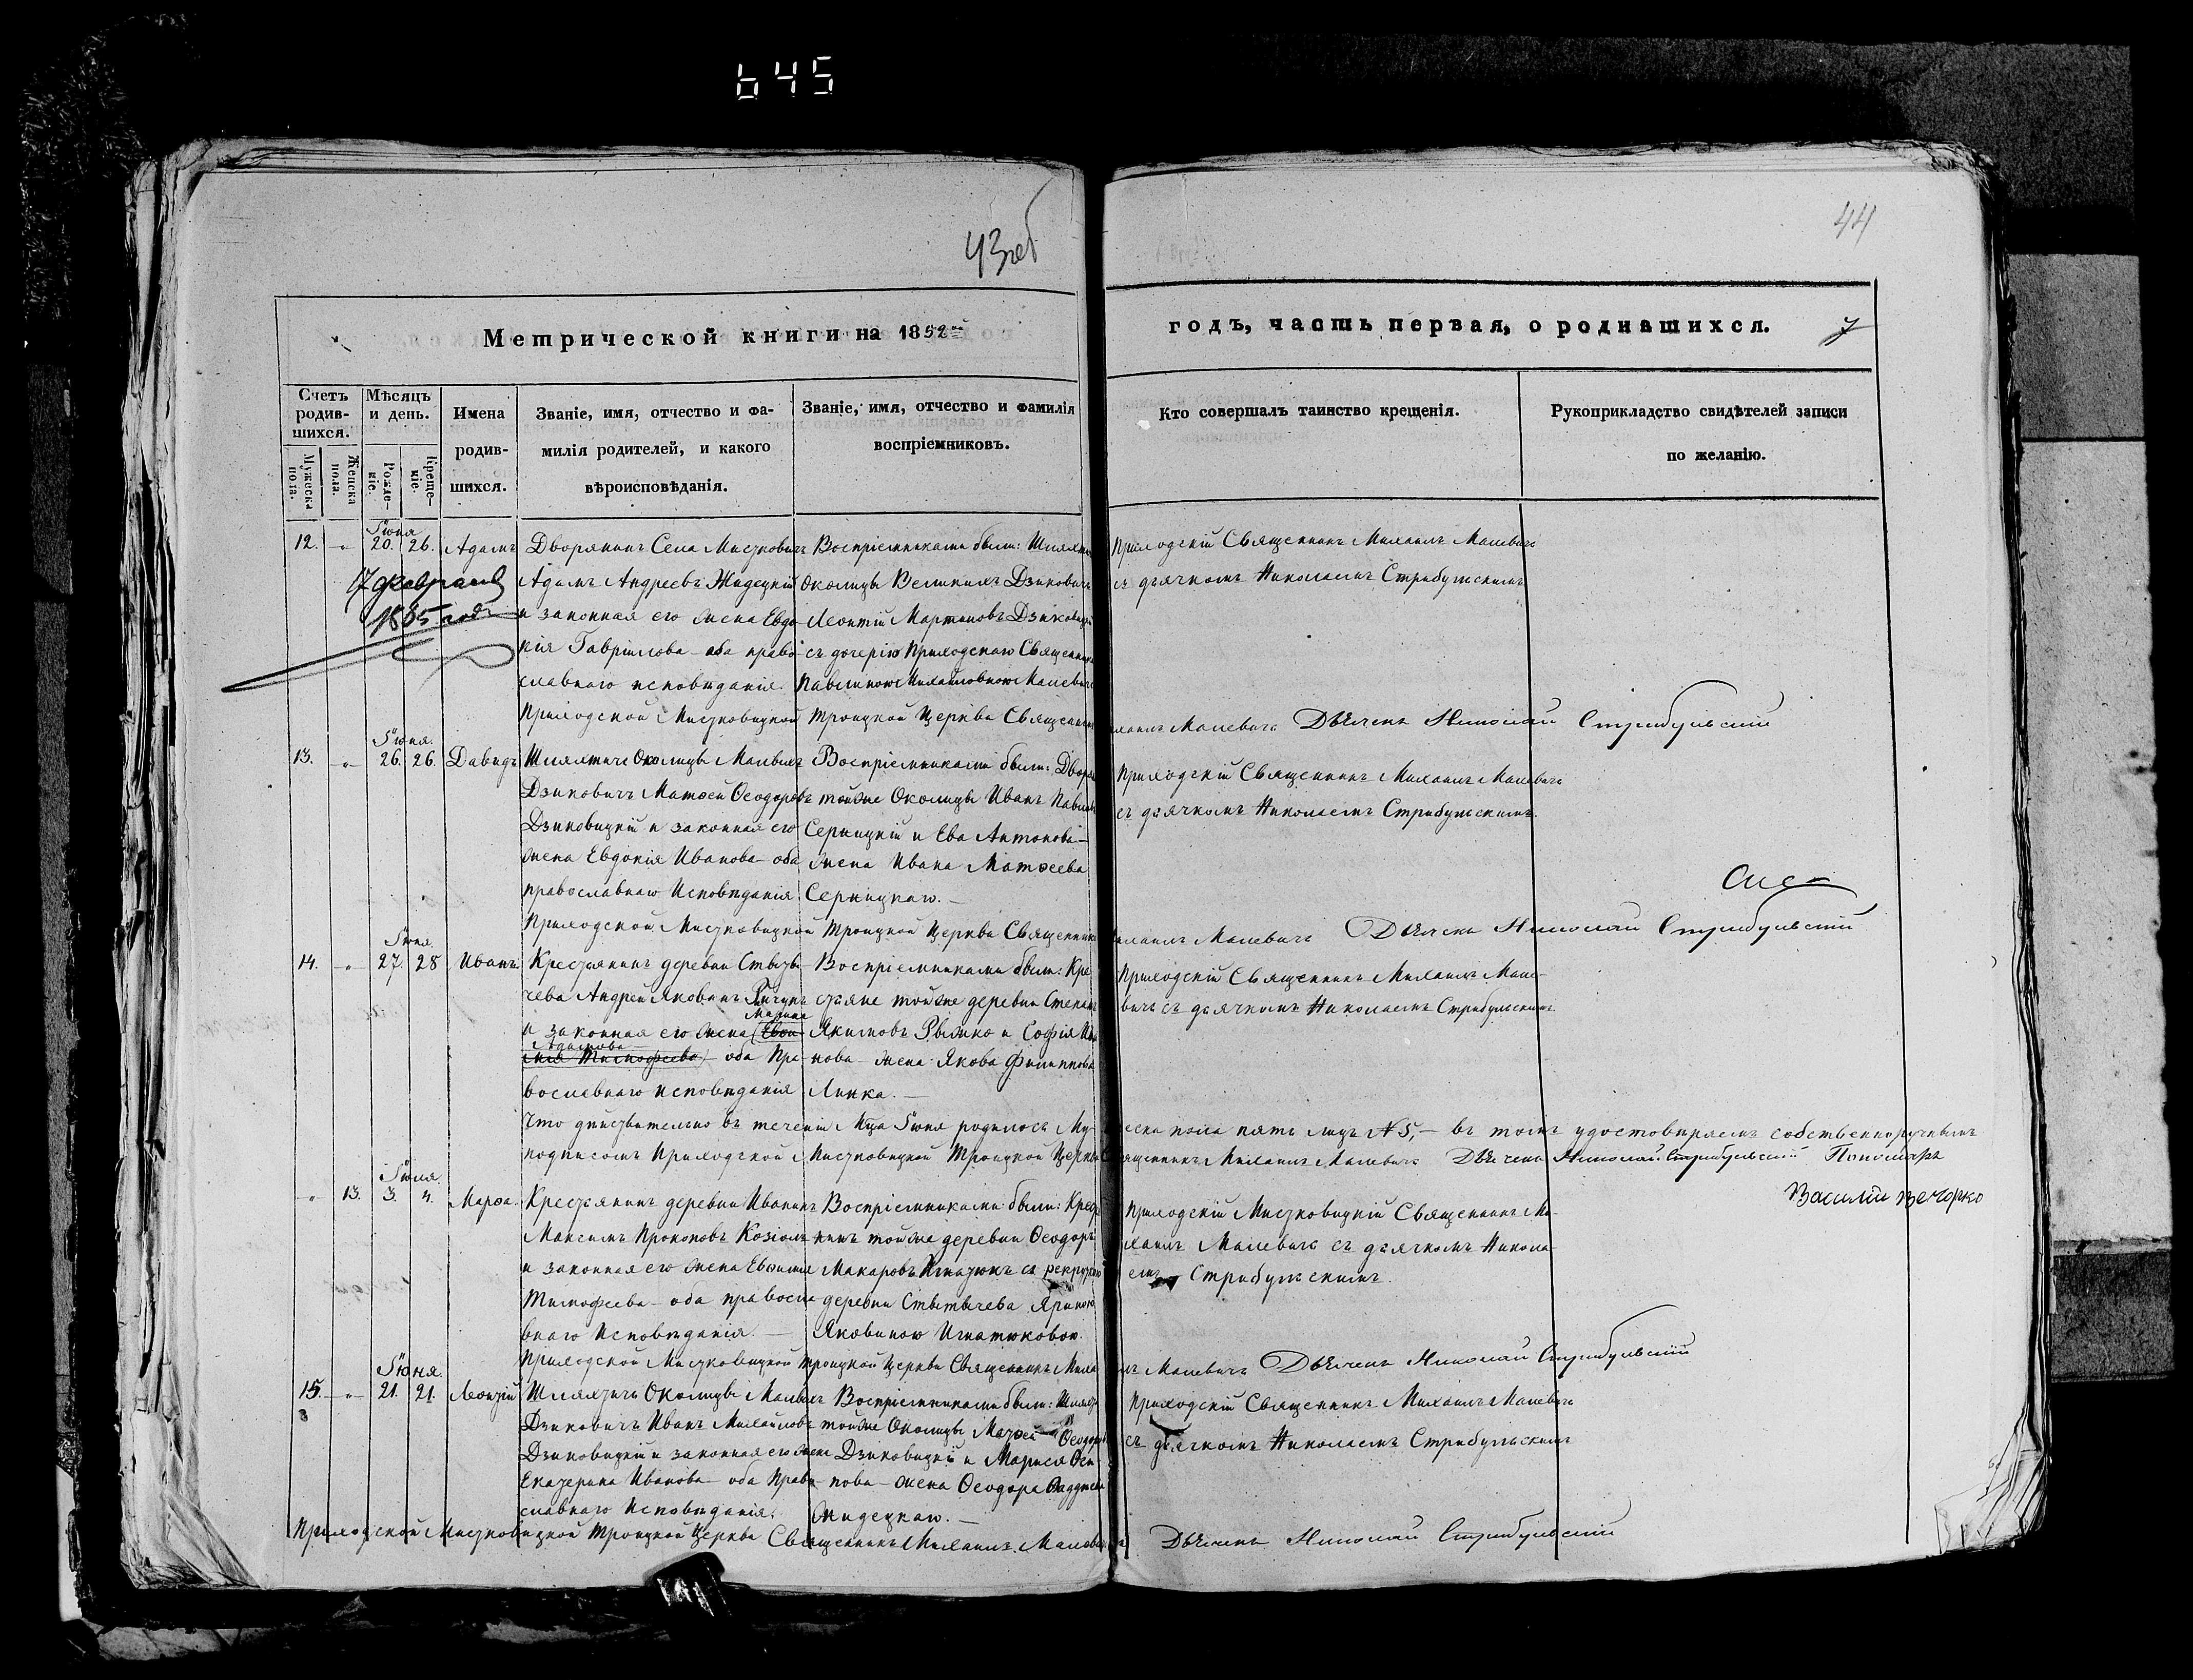 645
43 об
44
Метрической книги на 1852
годъ, часть первая, о родившихся.
7
Счетъ родив-шихся.
Мѣсяцъ и день.
Имена родив-шихся.
Званіе, имя, отчество и фа-
милія родителей, и какого
вѣроисповѣданія.
Званіе, имя, отчество и фамилія
воспріемниковъ.
Кто совершалъ таинство крещенія.
Рукоприкладство свидѣтелей записи
по желанію.
Мужеска пола.
Женска пола.
Рожде-ніе.
Креще-ніе.
Іюня
12. „ 20. 26. Адамъ
17 февраля
1885 года
Дворянинъ Села Мистковичъ
Адамъ Андреевъ Жидецкій
и законная его жена Евдо
кія Гавріилова – оба право
славнаго исповѣданія.
Воспріемниками были:
Околицы Великихъ Дзиковичъ
Леонтій Мартиновъ
съ дочерію Приходскаго
Павлиною Михаиловною
Приходскій Священникъ Михаилъ Малевичъ
съ дьячкомъ Николаемъ Стрибульскимъ
Приходской Мистковицкой Троицкой Церкви Священникъ Михаилъ Малевичъ Дьячекъ Николай Стрибульскій
Іюня.
13. „ 26. 26. Давидъ
Шляхтичъ Околицы Малыхъ
Дзиковичъ Матѳей Ѳеодоровъ
Дзиковицкій и законная его
жена Евдокія Иванова – оба
православнаго Исповѣданія
Воспріемниками были:
тойже Околицы Иванъ
Серницкій и Ева Антонова –
жена Ивана Матѳеева
Серницкаго. –
Приходскій Священникъ Михаилъ Малевичъ
съ дьячкомъ Николаемъ Стрибульскимъ.
Приходской Мистковицкой Троицкой Церкви Священникъ Михаилъ Малевичъ Дьячекъ Николай Стрибульскій
Іюня.
14. „ 27. 28 Иванъ
Крестьянинъ деревни Ствты
чева Андрей Яковъ
Марина
и законная его жена
Адамова
Тимофеева – оба Пра-
вославнаго исповѣданія
Воспріемниками были: Кре
стьяне тойже деревни Степанъ
Якимовъ Рыжко и Софія
нова – жена Якова Филиппова
Линка. –
Приходскій Священникъ Михаилъ Мале-
вичъ съ дьячкомъ Николаемъ Стрибульскимъ
Что дѣйствительно въ теченіи Мца Іюня родилось Му- жеска пола пять лицъ №5, – въ томъ удостовѣряемъ собственноручнымъ
подписомъ Приходской Мистковицкой Троицкой Церкви Священникъ Михаилъ Малевичъ Дьячекъ Николай Стрибульскій Пономарь
Василій Вечорко
Іюля.
„ 13. 3. 4. Марѳа.
Крестьянинъ деревни Иваникъ
Максимъ Прокоповъ Козіолъ
и законная его жена Евфимія
Тимофеева – оба правосла
внаго Исповѣданія. –
Воспріемниками были:
нинъ тойже деревни Ѳеодоръ
Макаровъ Игнатюкъ съ
деревни Стытычева Яриною
Яковиною Игнатюковою.
Приходскій Мистковицкій Священникъ Ми-
хаилъ Малевичъ съ дьячкомъ Никола-
емъ Стрибульскимъ.
Приходской Мистковицкой Троицкой Церкви Священникъ Михаилъ Малевичъ Дьячекъ Николай Стрибульскій
Іюня.
15. „ 21. 21. Леонтій
Шляхтичъ Околицы Малыхъ
Дзиковичъ Иванъ Михайловъ
Дзиковицкій и законная его жена
Екатерина Иванова – оба Право
славнаго Исповѣданія.
Воспріемниками были:
тойже Околицы Матѳей Ѳеодоровъ
Дзиковицкій и Марися
пова – жена Ѳеодора
Жидецкаго. –
Приходскій Священникъ Михаилъ Малевичъ
съ дьячкомъ Николаемъ Стрибульскимъ
Приходской Мистковицкой Троицкой Церкви Священникъ Михаилъ Малевичъ Дьячекъ Николай Стрибульскій